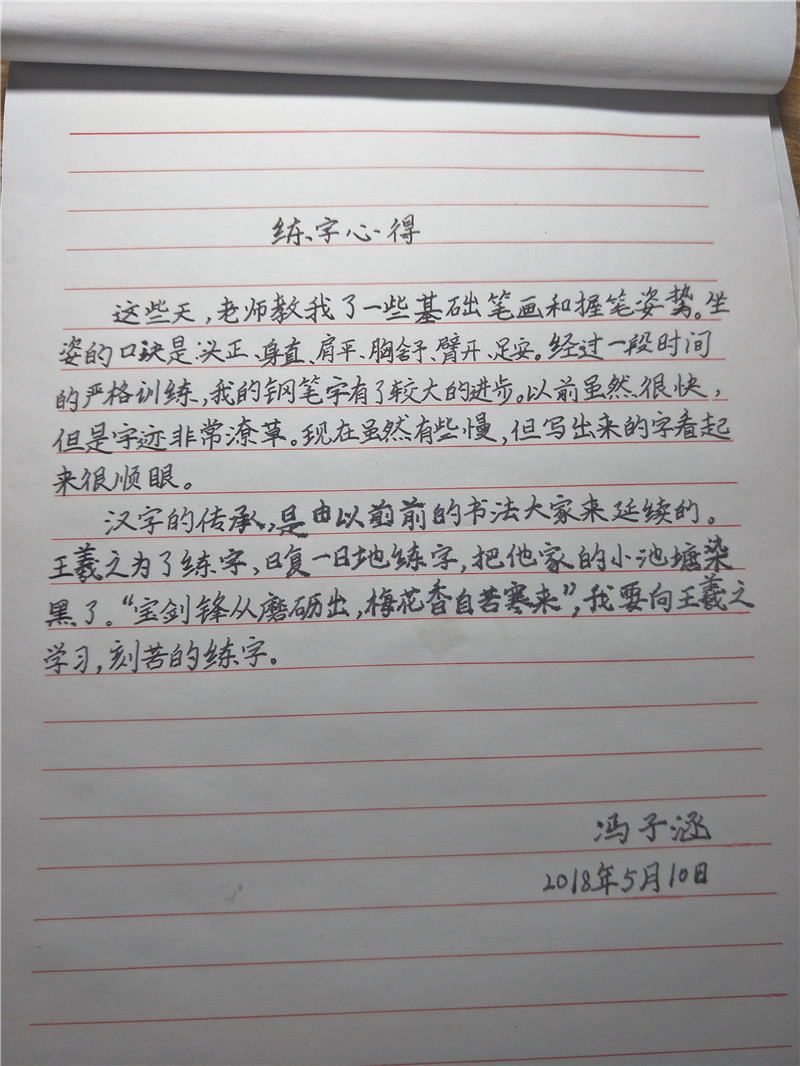 练字心得
这些天,老师教我了一些基础笔画和握笔姿势。坐
姿的口诀是头正、身直、肩平、胸舒、臂开、足安。经过一段时间
的严格训练,我的钢笔字有了较大的进步。以前虽然很快,
但是字迹非常潦草。现在虽然有些慢,但写出来的字看起
来很顺眼。
汉字的传承,是由以前前的书法大家来延续的。
王羲之为了练字,日复一日地练字,把他家的小池塘染
黑了。“宝剑锋从磨砺出,梅花香自苦寒来”,我要向王羲之
学习,刻苦的练字。
冯子涵
2018年5月10日